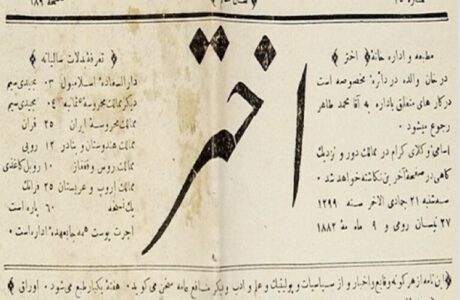 سال
اختر
مطبعه و اداره خانهٔ ﴿ اختر ﴾
در خان والده در دائرهٔ مخصوصه است
در کارهای متعلق باداره به آقا محمد طاهر
رجوع میشود ٠
اسامی وکلای کرام در ممالک دور و نزدیک
گاهی در صفحهٔ آخرین نگاشته خواهد شد ٠
سه‌شنبه ٢١ جمادی الاخر سنه ١٢٩٩
٢٧ نیسان رومی و ٩ مه ١٨٨٢
﴿ تعرفهٔ بدلات سالیانه ﴾
دارالسعادهٔ اسلامبول ٠٣ مجیدی سیم
دیگر ممالک محروسهٔ عثمانیه ٠٤ مجیدی سیم
ممالک محروسهٔ ایران ٢٥ قران
ممالک هندوستان و بنادر ١٢ روپی
ممالک روس و قفقاز ١٠ روبل کاغذی
ممالک اروپ و عربستان ٢٥ فرانک
یک نسخه ٦٠ پاره است
اجرت پوست همه جا بعهدهٔ اداره است ٠
﴿ این نامه از هر گونه وقایع و اخبار و از سیاسیات و پولتیک و علم و ادب و دیگر منافع عامه سخن میگوید ٠ هفتهٔ یکبار طبع می‌شود ٠ اوراق ﴾